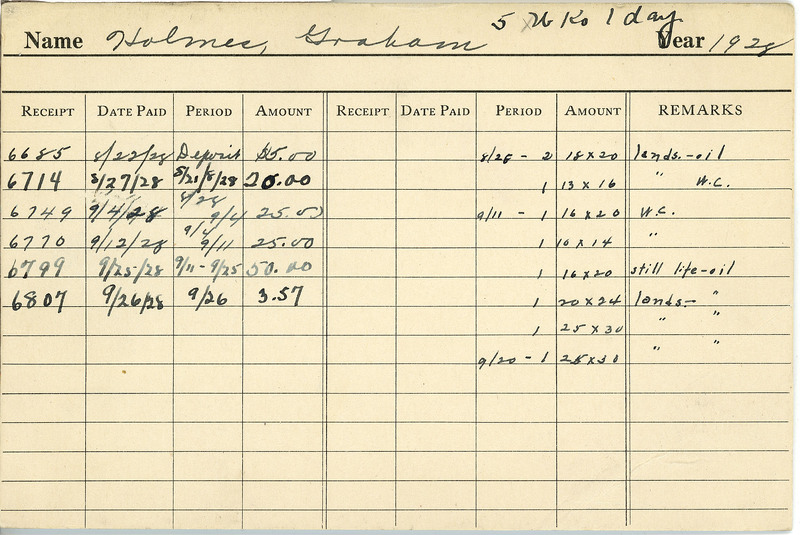 5 Wks 1 day
Name Holmes, Graham Year 1928
RECEIPT DATE PAID PERIOD AMOUNT RECEIPT DATE PAID PERIOD AMOUNT REMARKS
6685 8/22/28 Deposit $5.00 8/28 - 2 18x20 lands.-oil
6714 8/27/28 8/21/8/28 20.00 1 13x16 " W.C.
6749 9/4/28 8/28 9/4 25.00 9/11 - 1 16x20 W.C.
6770 9/12/28 9/4 9/11 25.00 1 10x14 "
6799 9/25/28 9/11-9/25 50.00 1 16x20 still life-oil
6807 9/26/28 9/26 3.57 1 20x24 lands- "
1 25x30 " "
9/20 - 1 25x30 " "